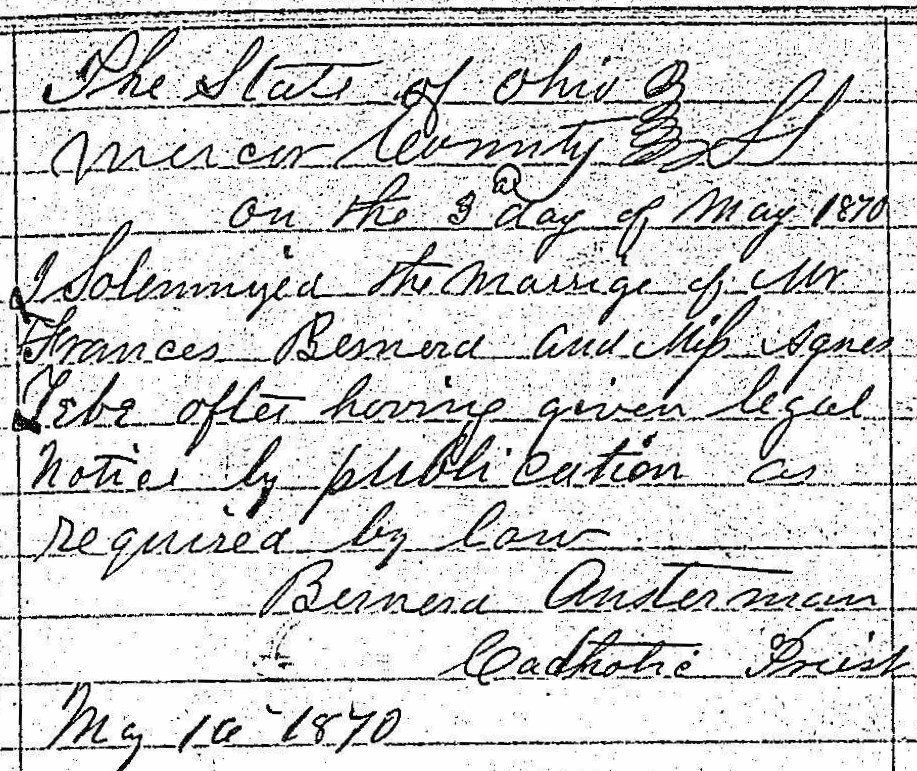 The State of Ohio }
Mercer County } SS
on the 3d day of May 1870
I Solemnized the Marrige of Mr
Frances Bernerd and Miss Agnes
Tebe after having given legal
Notice by publication as
required by law
Bernerd Austerman
Cadtholic Priest
May 1870